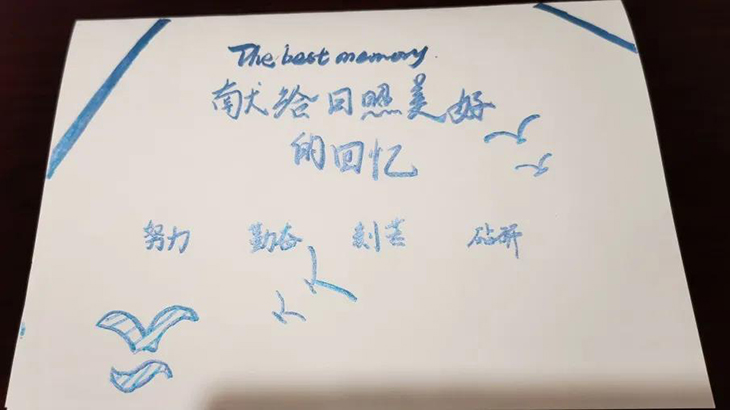 The best memory.
献给日照美好
的回忆
努力 勤奋 刻苦 钻研